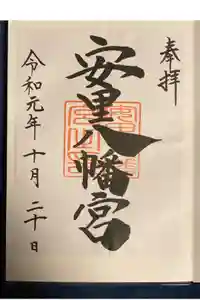 奉拝
安里八幡宮
令和元年 十月 二十日